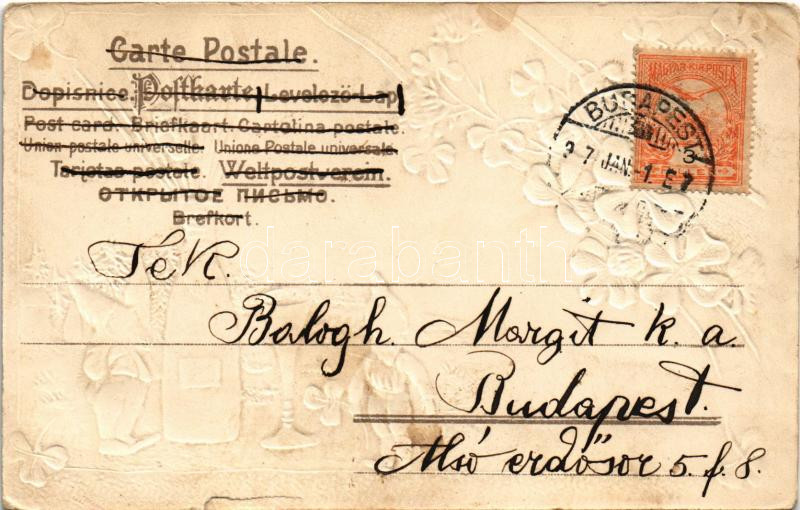 Carte Postale.
Dopisnice. Postkarte Levelező-Lap
Post card. Briefkaart. Cartolina postale.
Union postale universelle. Unione Postale universale.
Tarjetas postale. Weltpostverein.
ОТКРЫТОЕ ПИСЬМО.
Brefkort.
MAGYAR KIR. POSTA
BUDAPEST
3
7 JAN. -1. E 7
darabanth
Tek.
Balogh. Margit k. a.
Budapest.
Alsó erdősor 5. f. 8.